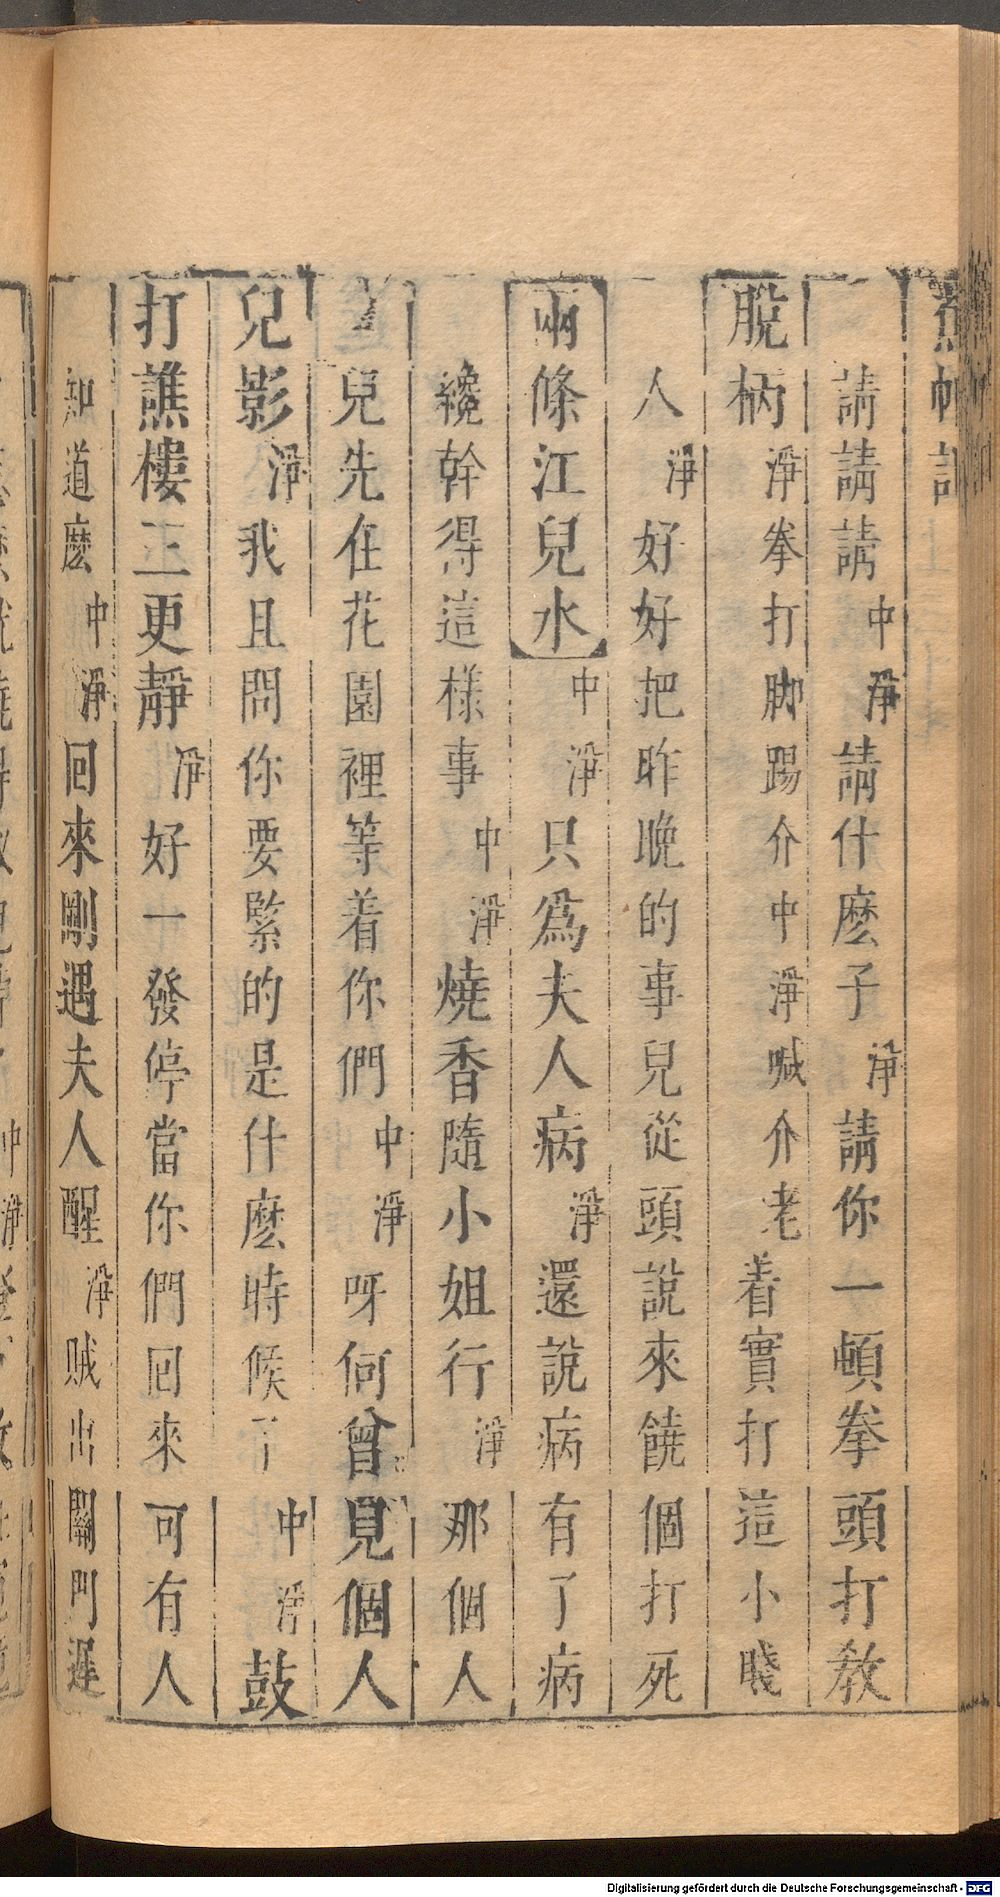 請請請中淨請什麽子淨請你一頓拳頭打教
脫柄淨拳打脚踢介中淨喊介老着實打這小賤
人淨好好把昨晚的事兒從頭說來饒個打死
兩條江兒水中淨只爲夫人病淨還說病有了病
纔幹得這樣事中淨燒香隨小姐行淨那個人
兒先在花園裡等着你們中淨呀何曾見個人
兒影淨我且問你要緊的是什麽時候了中淨鼓
打譙樓三更靜淨好一發停當你們回來可有人
知道麽中淨回來剛遇夫人醒淨賊出關門遲
Digitalisierung gefördert durch die Deutsche Forschungsgemeinschaft - DFG